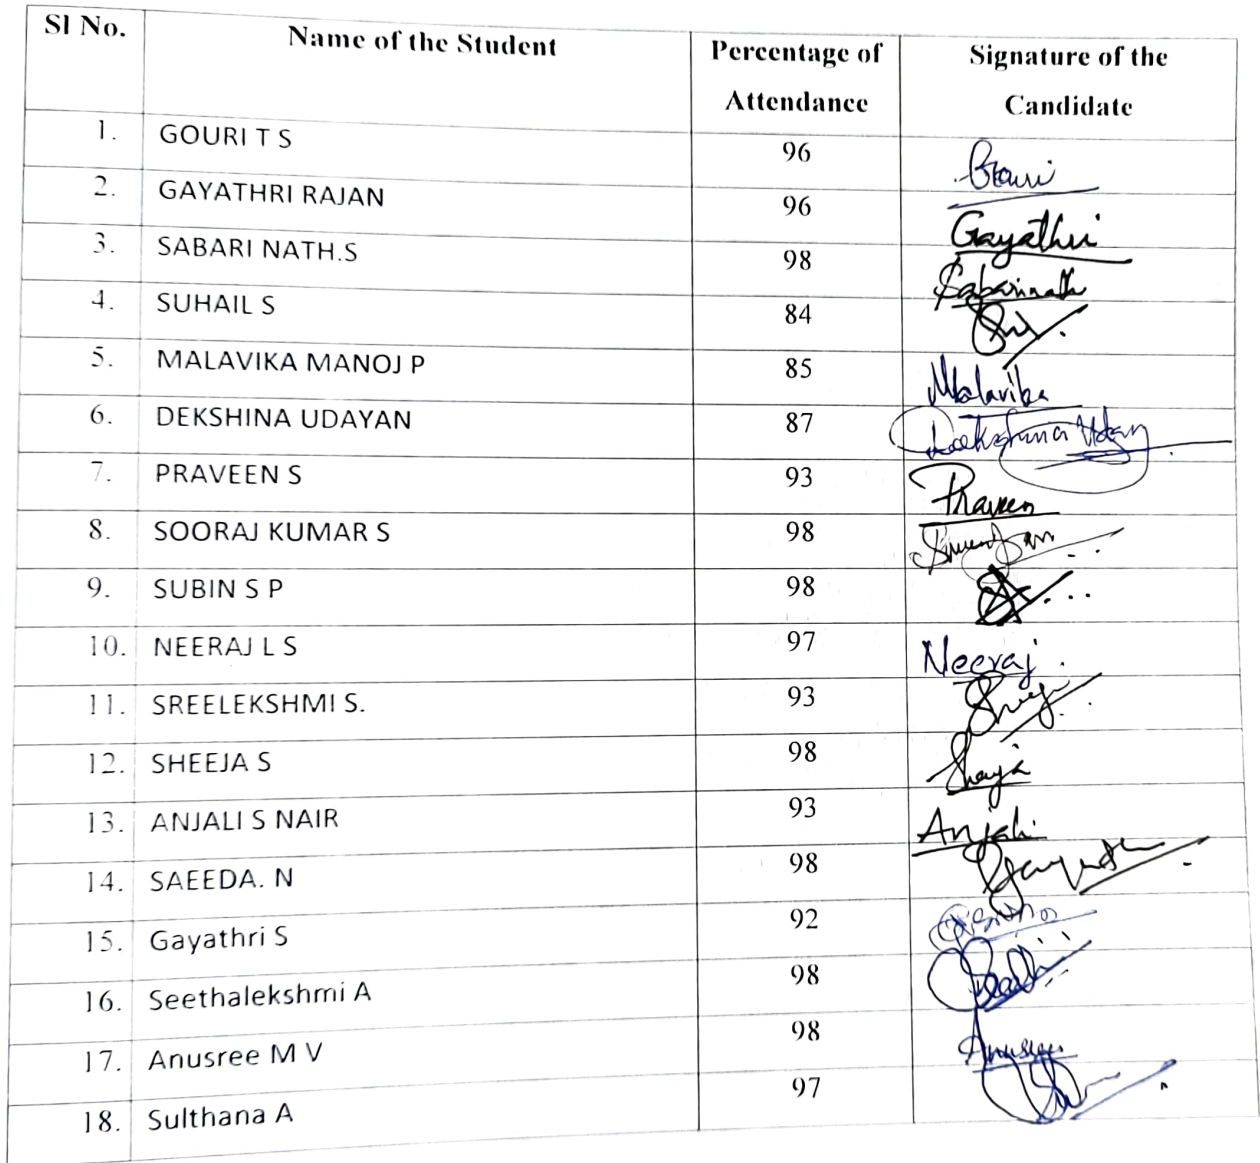 Sl No. Name of the Student Percentage of Attendance Signature of the Candidate
1. GOURI T S 96 Gouri
2. GAYATHRI RAJAN 96 Gayathri
3. SABARI NATH.S 98 Sabarinath
4. SUHAIL S 84
5. MALAVIKA MANOJ P 85 Malavika
6. DEKSHINA UDAYAN 87
7. PRAVEEN S 93 Praveen
8. SOORAJ KUMAR S 98
9. SUBIN S P 98
10. NEERAJ L S 97 Neeraj
11. SREELEKSHMI S. 93
12. SHEEJA S 98 Sheeja
13. ANJALI S NAIR 93 Anjali
14. SAEEDA. N 98
15. Gayathri S 92
16. Seethalekshmi A 98
17. Anusree M V 98 Anusree
18. Sulthana A 97